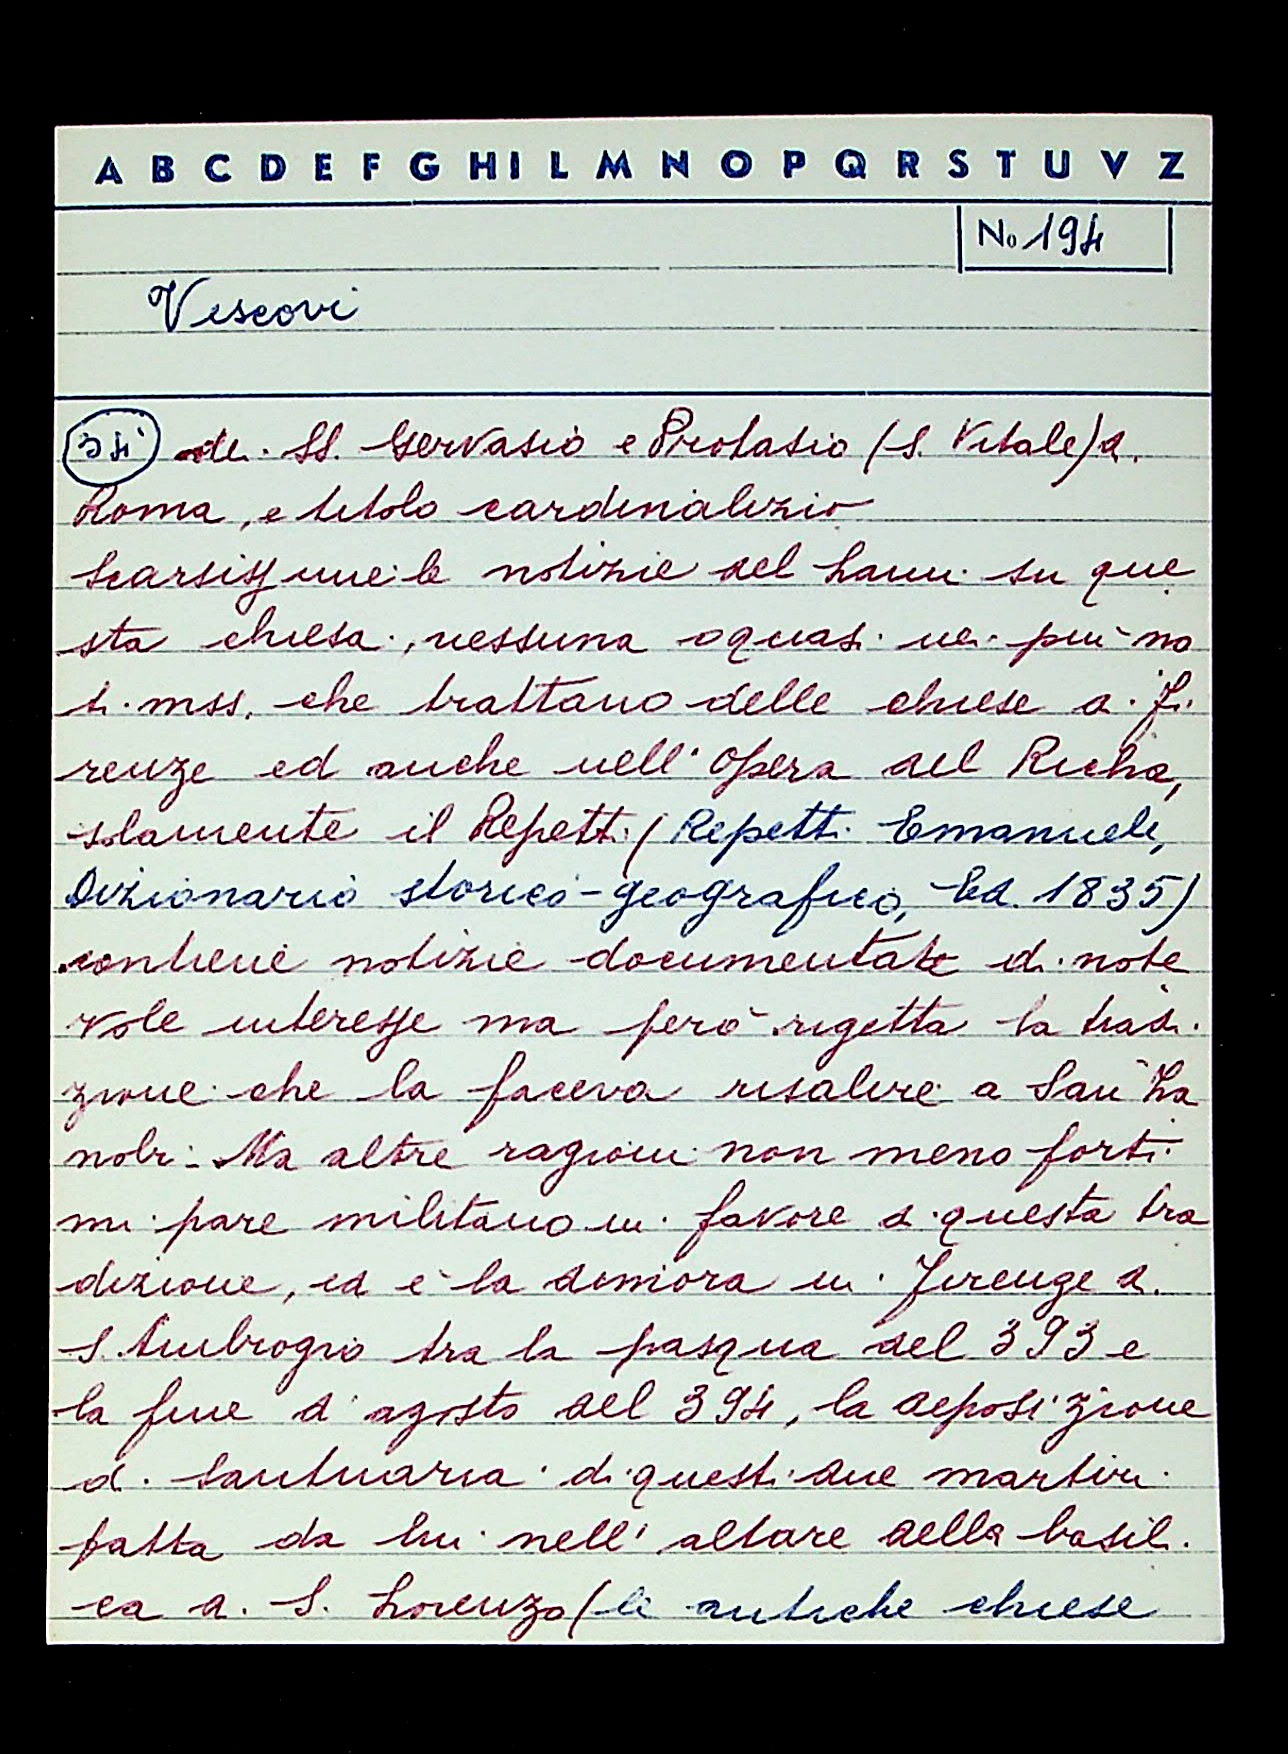 A B C D E F G H I L M N O P Q R S T U V Z
No 194
Vescovi
34) dei SS. Gervasio e Protasio (S. Vitale) di
Roma, e titolo cardinalizio
Scarsissime le notizie del Lami su que
sta chiesa, nessuna o quasi nei più no
ti mss. che trattano delle chiese di Fi
renze ed anche nell'opera del Richa,
solamente il Repetti (Repetti Emanuele,
Dizionario storico-geografico, Ed. 1835)
contiene notizie documentate di note
vole interesse ma però rigetta la tradi
zione che la faceva risalire a San Za
nobi. Ma altre ragioni non meno forti
mi pare militano in favore di questa tra
dizione, ed è la dimora in Firenze di
S. Ambrogio tra la pasqua del 393 e
la fine d'agosto del 394, la deposizione
di santuaria di questi due martiri
fatta da lui nell'altare della basili
ca di S. Lorenzo (le antiche chiese